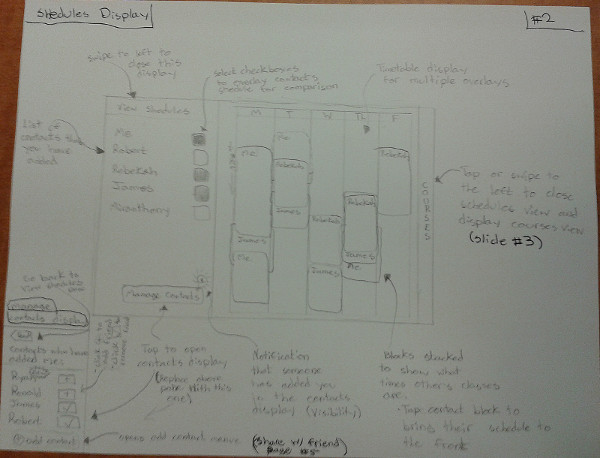 Shedules Display
#2
swipe to left to
close this
display
select checkboxes
to overlay contacts
shedule for comparison
Timetable display
for multiple overlays
View Shedules
M T W Th F
List of
contacts that
you have
added
Me
Robert
Rebekah
James
Me
Me
Rebekah
James
James
Me
Rebekah
James
Rebekah
James
Me
Rebekah
COURSES
Tap or swipe to
the left to close
schedules view and
display courses view
(slide #3)
Go back to
view shedules
Manage Contacts
manage
contacts display
contacts who have
added me:
Ryan
Ronald
James
Robert
add contact
Tap to open
contacts display
(Replace above
pane with this
one)
Notification
that someone
has added you
in the contacts
display (visibility)
Blocks stacked
to show what
times others classes
are.
- Tap contact block to
bring their schedule to
the front
opens add contact menue
(share w/ friend)